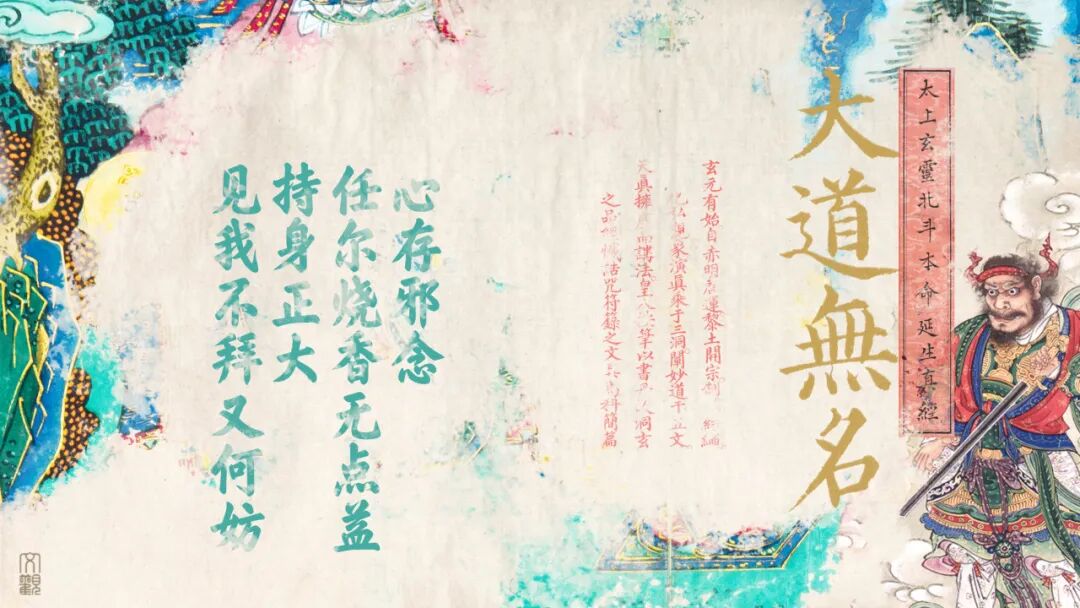 太上玄靈北斗本命延生真經
大道無名
玄元有始自赤明 運黎土開宗 
 家演眞乘于三洞闡妙道于 文
 眞擁 而講法皇 筆以書 洞玄
之品 誥咒符籙之文 科簡篇
心存邪念
任尔烧香无点益
持身正大
见我不拜又何妨
文觀